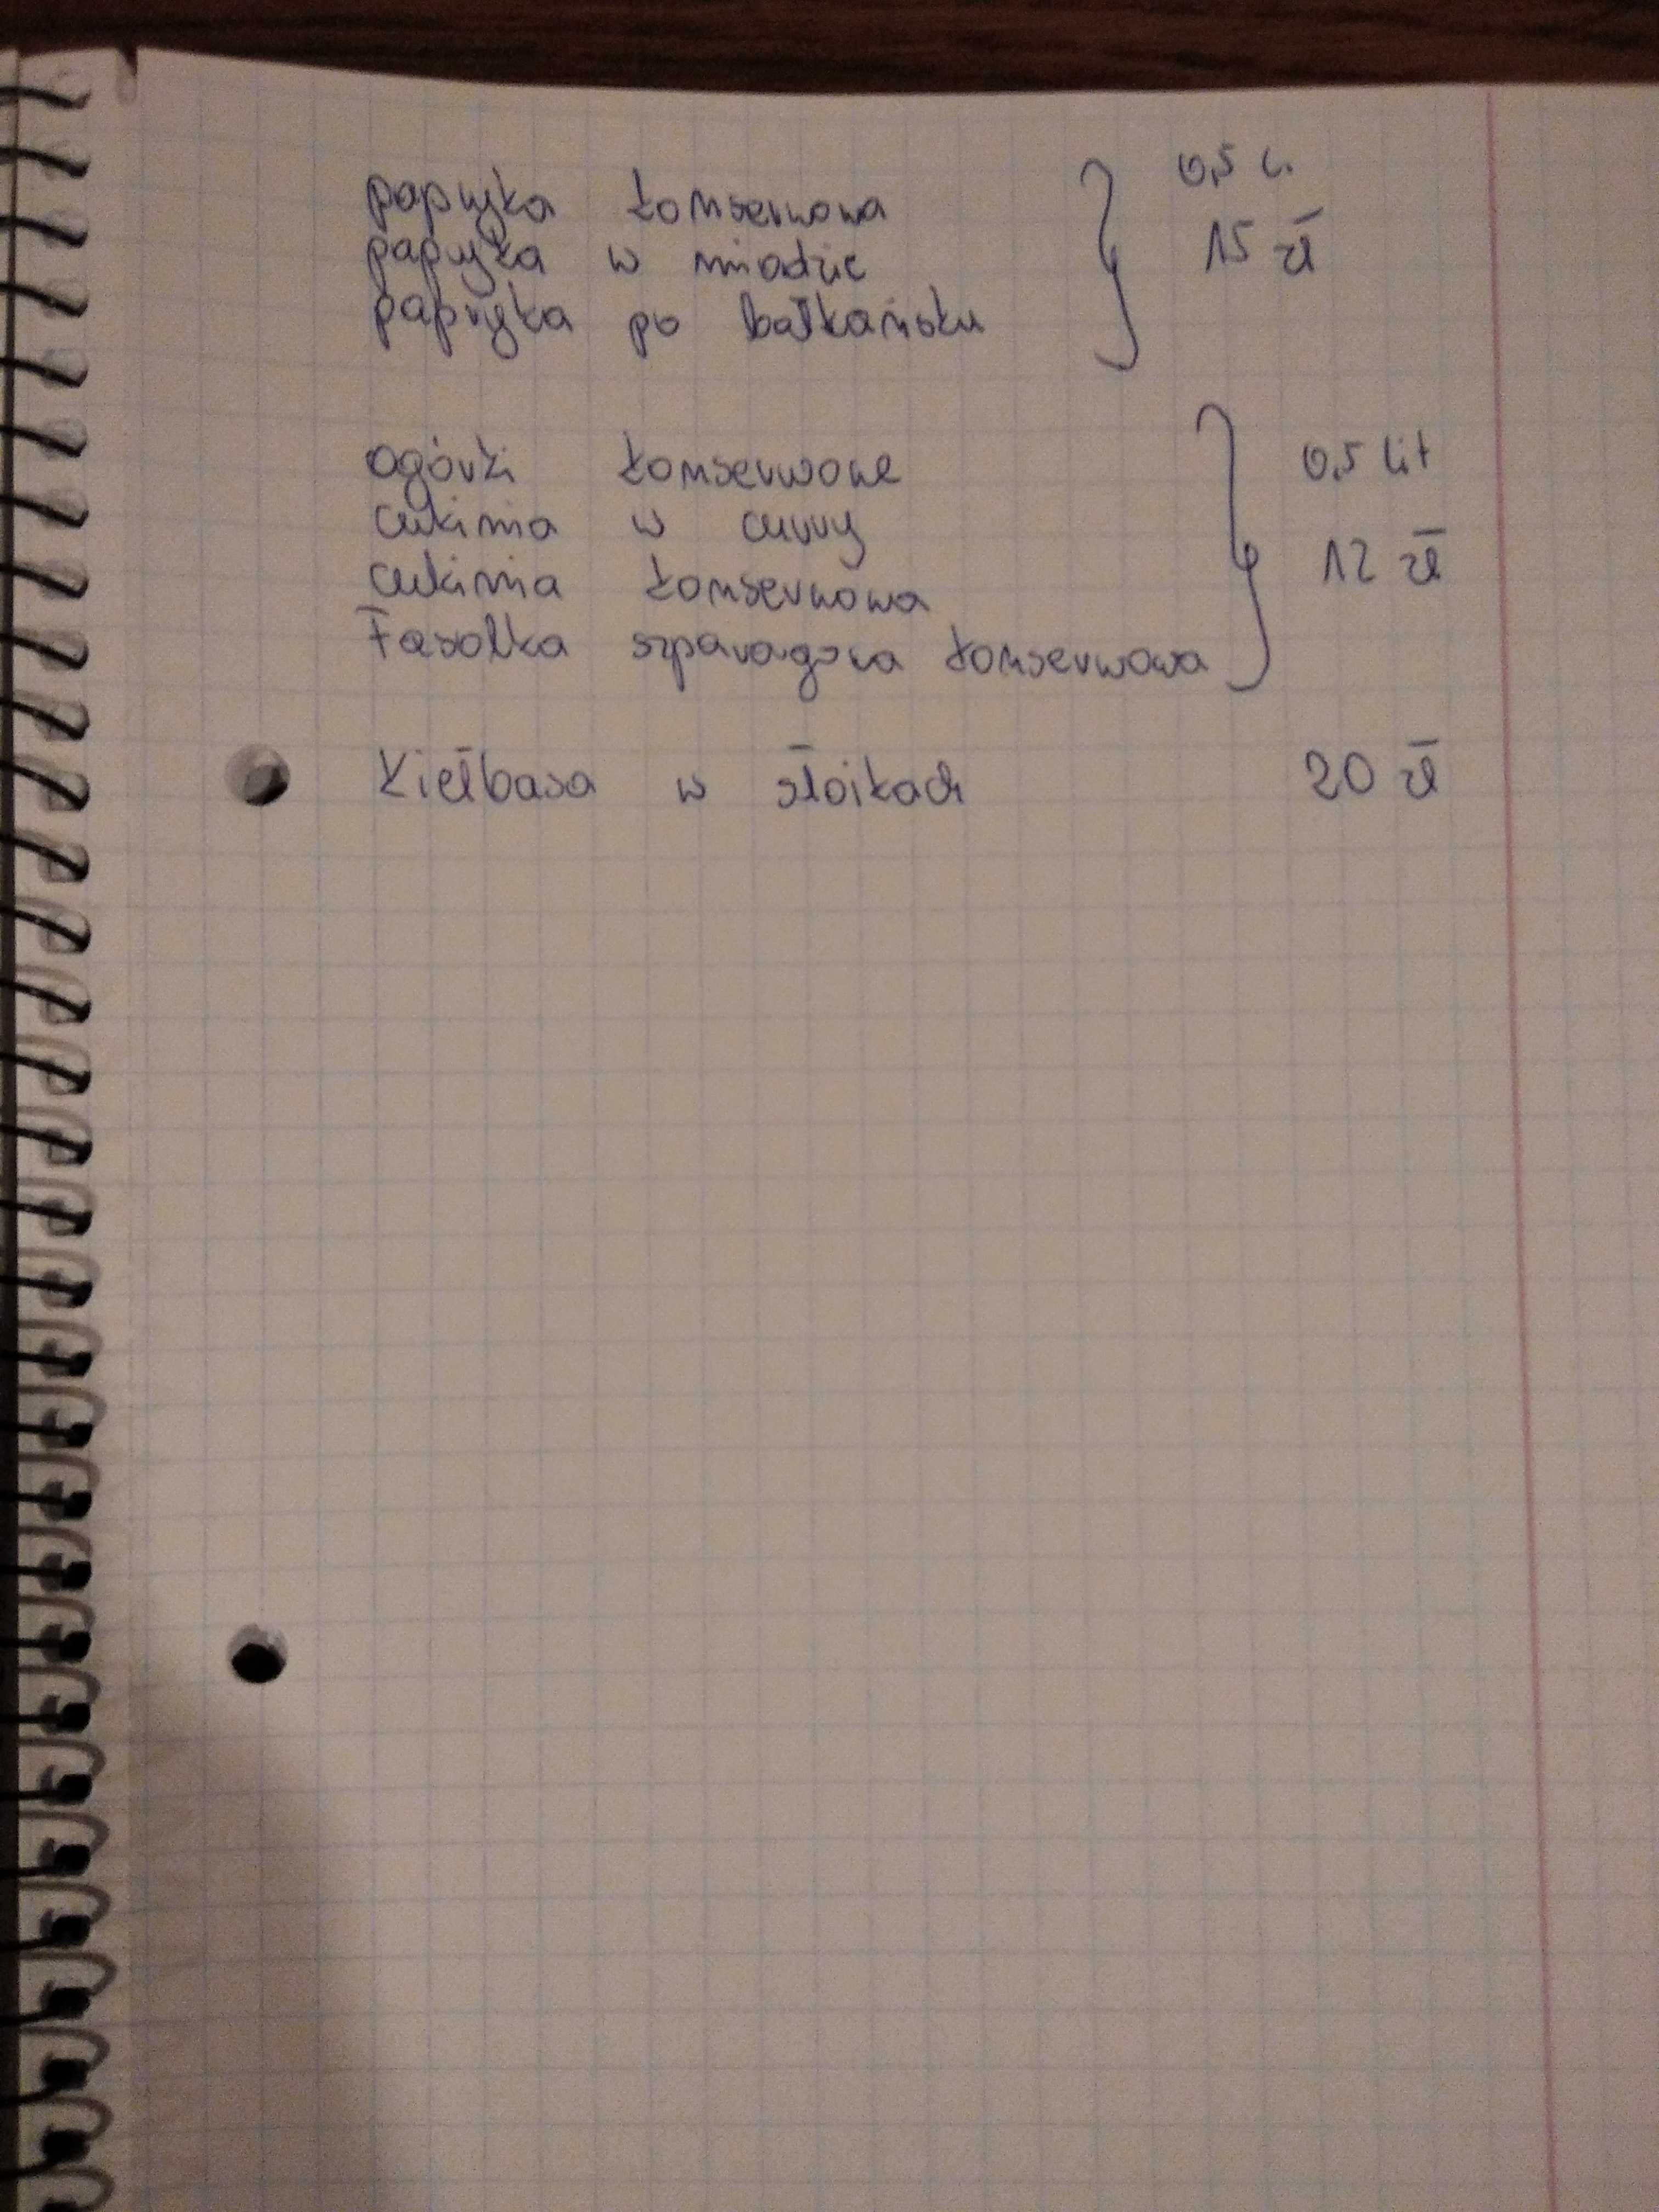 papryka konserwowa } 0,5 l.
papryka w miodzie 15 zł
papryka po bałkańsku
ogórki konserwowe } 0,5 lit
cukinia w curry
cukinia konserwowa 12 zł
Fasolka szparagowa konserwowa
Kiełbasa w słoikach 20 zł